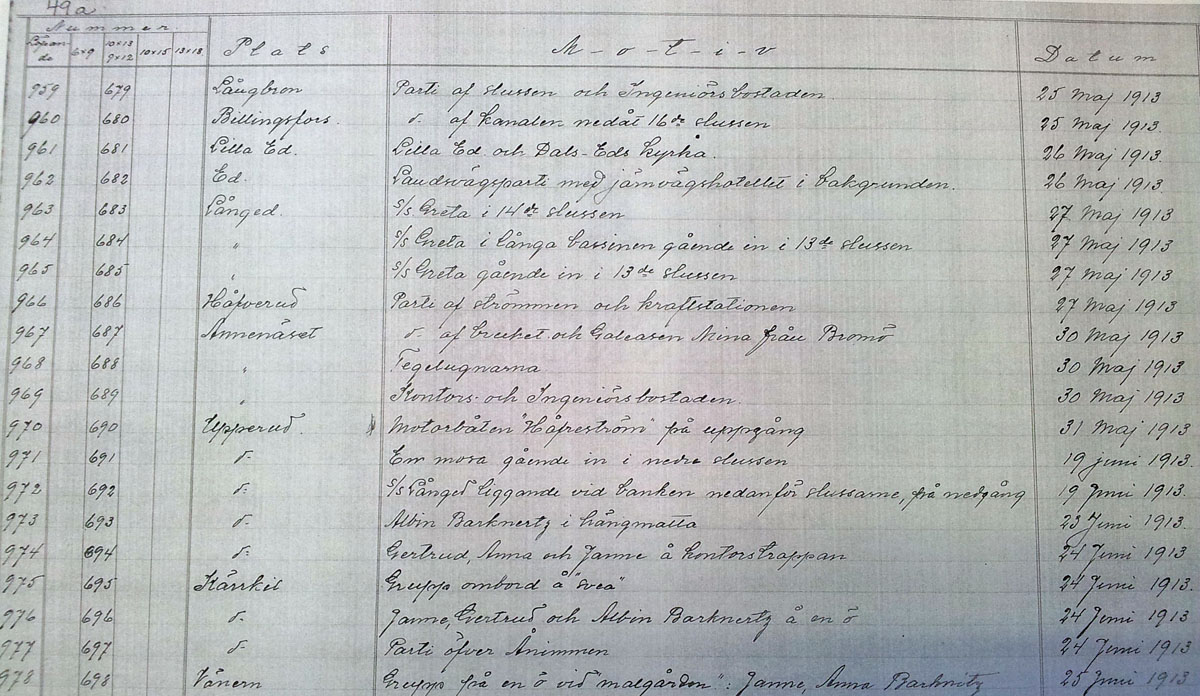 49a.
Nummer
Löpande 6x9 10x13 9x12 10x15 13x18 Plats Motiv Datum
959 679 Långbron Parti af slussen och Ingeniörsbostaden. 25 Maj 1913
960 680 Billingsfors. d:o af kanalen nedåt 16de slussen 25 Maj 1913.
961 681 Lilla Ed. Lilla Ed. och Dals-Eds kyrka. 26 Maj 1913.
962 682 Ed. Landsvägsparti med järnvägshotellet i bakgrunden. 26 Maj 1913
963 683 Långed. S/s Greta i 14de slussen 27 Maj 1913
964 684 " S/s Greta i långa bassinen gående in i 13de slussen 27 Maj 1913
965 685 " S/s Greta gående in i 13de slussen 27 Maj 1913
966 686 Håfverud Parti af strömmen och kraftstationen 27 Maj 1913
967 687 Annenäset d:o af bruket och Galeasen Mina från Bromö 30 Maj 1913
968 688 " Tegelugnarna 30 Maj 1913
969 689 " Kontors- och Ingeniörsbostaden. 30 Maj 1913
970 690 Upperud. Motorbåten "Håfreström" på uppgång 31 Maj 1913
971 691 d:o En mosa gående in i nedre slussen 19 juni 1913.
972 692 d:o S/s Långed liggande vid banken nedanför slussarne, på nedgång 19 Juni 1913.
973 693 d:o Albin Barknertz i hängmatta 23 Juni 1913.
974 694 d:o Gertrud, Anna och Janne å kontorstrappan 24 Juni 1913.
975 695 Kärrkil Grupp ombord å "Svea" 24 Juni 1913.
976 696 d:o Janne, Gertrud och Albin Barknertz å en ö 24 Juni 1913.
977 697 d:o Parti öfver Ånimmen 24 Juni 1913.
978 698 Vänern Grupp på en ö vid "malgården": Janne, Anna Barknertz 25 Juni 1913